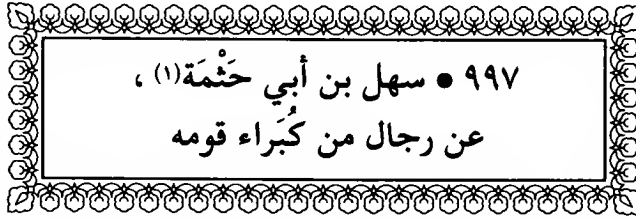 ٩٩٧ • سهل بن أبي حَثْمَة(١) ،
عن رجال من كُبَراء قومه